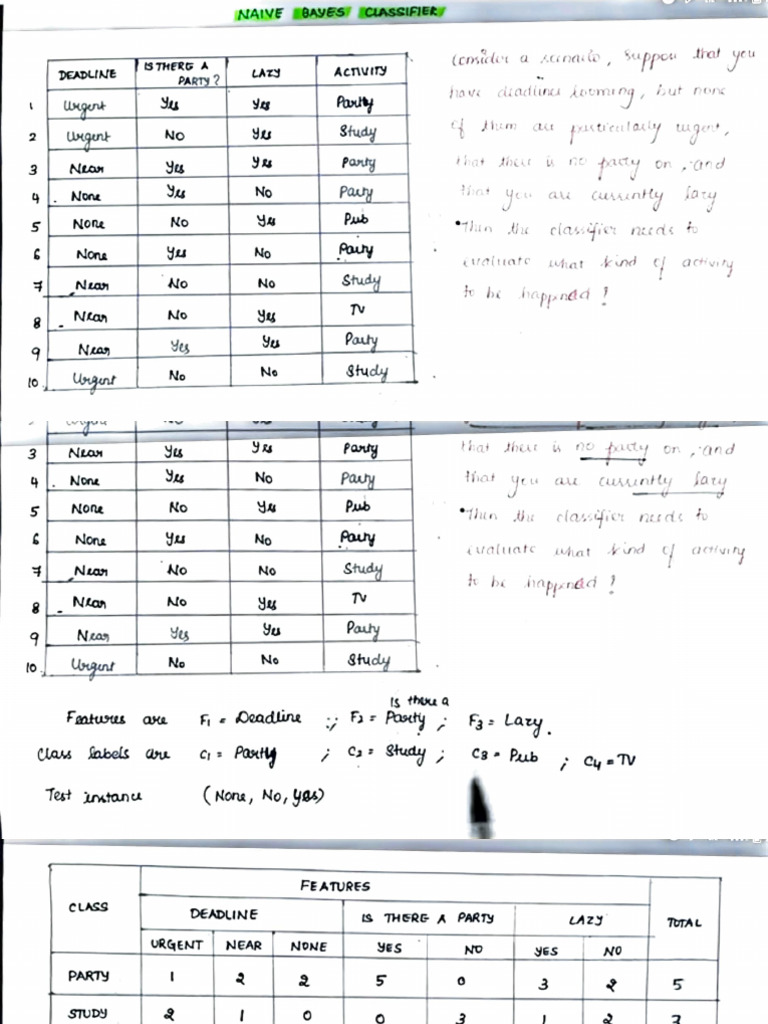 NAIVE BAYES CLASSIFIER
DEADLINE IS THERE A PARTY? LAZY ACTIVITY
1 Urgent Yes Yes Party
2 Urgent NO Yes Study
3 Near Yes Yes Party
4 None Yes No Party
5 None No Yes Pub
6 None Yes No Party
7 Near No No Study
8 Near No Yes TV
9 Near Yes Yes Party
10. Urgent No No Study
Consider a scenario, suppose that you
have deadlines looming, but none
of them are particularly urgent,
that there is no party on, and
that you are currently lazy
• Then the classifier needs to
evaluate what kind of activity
to be happened!
3 Near Yes Yes Party
4 None Yes No Party
5 None No Yes Pub
6 None Yes No Party
7 Near No No Study
8 Near No Yes TV
9 Near Yes Yes Party
10. Urgent No No Study
that there is no party on, and
that you are currently lazy
• Then the classifier needs to
evaluate what kind of activity
to be happened!
Is there a
Features are F1 = Deadline ; F2 = Party ; F3 = Lazy.
Class labels are C1 = Party ; C2 = Study ; C3 = Pub ; C4 = TV
Test instance (None, No, Yes)
CLASS FEATURES TOTAL
DEADLINE IS THERE A PARTY LAZY
URGENT NEAR NONE YES NO YES NO
PARTY 1 2 2 5 0 3 2 5
STUDY 2 1 0 0 3 1 2 3